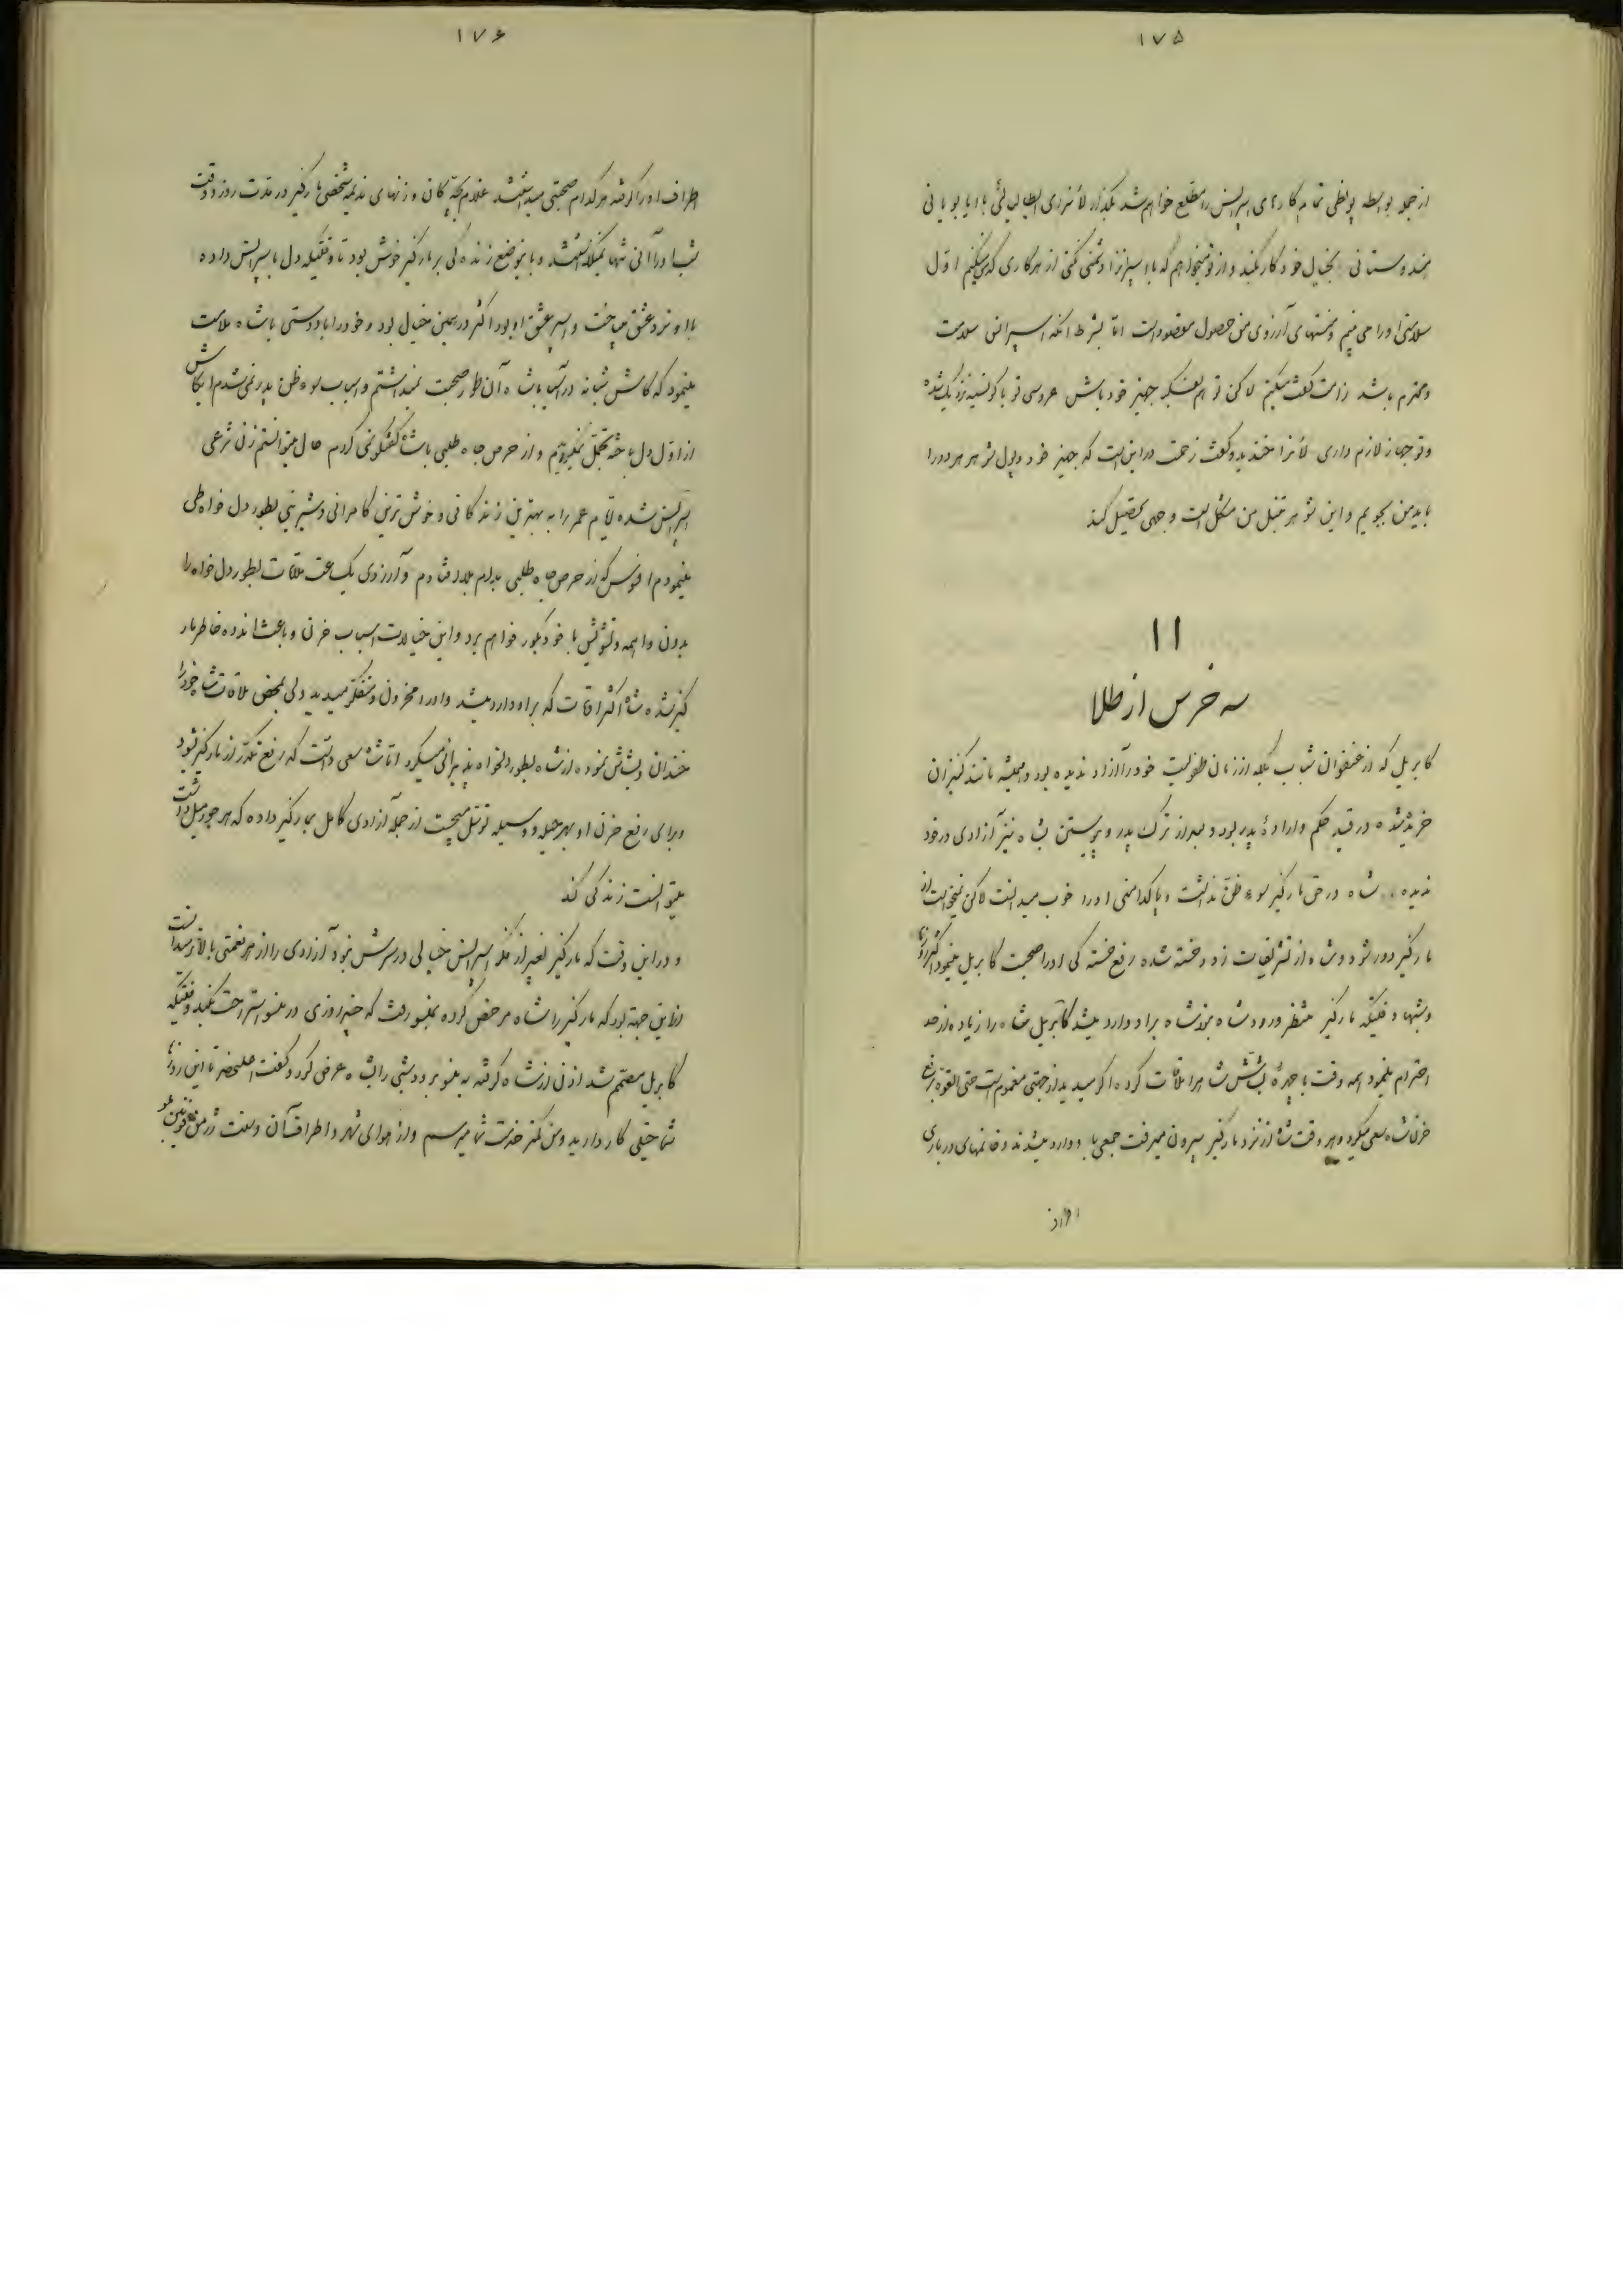 ۱۷۵
از جمله بواسطه پولطی تمام کارهای اسپرانس را مطلع خواهم شد بگذار لأنزری
هندوستانی بخیال خود کار بکند و از تو میخواهم که با اسپرانزا دشمنی نکنی از هر کاری که میکنیم اول
سلامتی او را می بینم و منتهای آرزوی من حصول مقصود است اما بشرط آنکه اسپرانس سلامت
و محترم باشد راست گفت میکنم لاکن تو هم بفکر جهیز خود باش عروسی تو با کونسینه نزدیک شده
و تو جهاز لازم داری لأنزا خندید و گفت زحمت در این است که جهیز خود و پول شوهر هر دو را
باید من بجویم و این شوهر تنبل من مشکل است وجهی تحصیل کند
۱۱
سه خرس از طلا
کابریل که از عنفوان شباب بلکه از زمان طفولیت خود را آزاد ندیده بود و همیشه مانند کنیزان
خریده شده در قید حکم و ارادهٔ پدر بود و بعد از ترک پدر و پیوستن بشاه نیز آزادی در خود
ندیده شاه در حق مارکیز سوء ظن نداشت و پاکدامنی او را خوب میدانست لاکن نمیخواست از
مارکیز دور شود و شاه از تشریفات زده و خسته شده رفع خسته گی او را صحبت کابریل مینمود اکثر روزها
و شبها وقتیکه مارکیز منتظر ورود شاه بود شاه بر او وارد میشد کابریل شاه را زیاده از حد
احترام مینمود همه وقت با چهرهٔ بشاش شاه را ملاقات کرده اگر میدید از جهتی مغموم است حتی القوه برفع
حزن شاه سعی میکرد و هر وقت شاه از نزد مارکیز بیرون میرفت جمعی باو وارد میشدند و خانمهای درباری
۱۷۶
اطراف او را گرفته هر کدام صحبتی میداشتند غلام بچه کان و زنهای ندیمه شخصی مارکیز در مدت روز و وقت
شب او را آنی تنها نمیگذاشتند و با این وضع زنده گی بر مارکیز خوش بود تا وقتیکه دل باسپرانس داده
با او نرد عشق میباخت و اسیر عشق او بود اکثر در همین خیال بود و خود را با دوستی با شاه ملامت
مینمود که کاش شبانه در آسیا با شاه آن طور صحبت نمیداشتم و اسباب سوء ظن پدر نمیشدم ایکاش
از اول دل بشاه و تجمل نمیدادیم و از حرص جاه طلبی با شاه گفتگو نمیکردم حال میتوانستم زن شرعی
اسپرانس شده تمام عمر را به بهترین زندگانی و خوش ترین کامرانی و شیرینی بطور دل خواه طی
مینمودم افسوس که از حرص جاه طلبی بدام بلا افتادم و آرزوی یک ساعت ملاقات بطور دل خواه را
بدون واهمه و تشویش با خود بگور خواهم برد و این خیالات اسباب حزن و باعث اندوه خاطر مار
کیز شده شاه اکثر اوقات که بر او وارد میشد و او را محزون و متفکر میدید ولی بمحض ملاقات شاه خود را
خندان و بشاش نموده از شاه بطور دلخواه پذیرائی میکرد اما شاه سعی داشت که رفع تکدر از مارکیز شود
و برای رفع حزن او بهر حیله و وسیله توسل میجست از جمله آزادی کامل بمارکیز داده که هر جور میل داشت
میتوانست زندگی کند
و در این وقت که مارکیز بغیر از فکر اسپرانس خیالی در سرش نبود آزادی را از هر نعمتی بالاتر میدانست
از این جهة بود که مارکیز را شاه مرخص کرده بمنسو رفت که چند روزی در منسو استراحت بکند وقتیکه
کابریل مصمم شد اذن از شاه گرفته به منسو برود شبی را بشاه عرض کرد و گفت اعلیحضرتا این روزها
شما خیلی کار دارید و من کمتر خدمت شما میرسم و از هوای شهر و اطراف آن